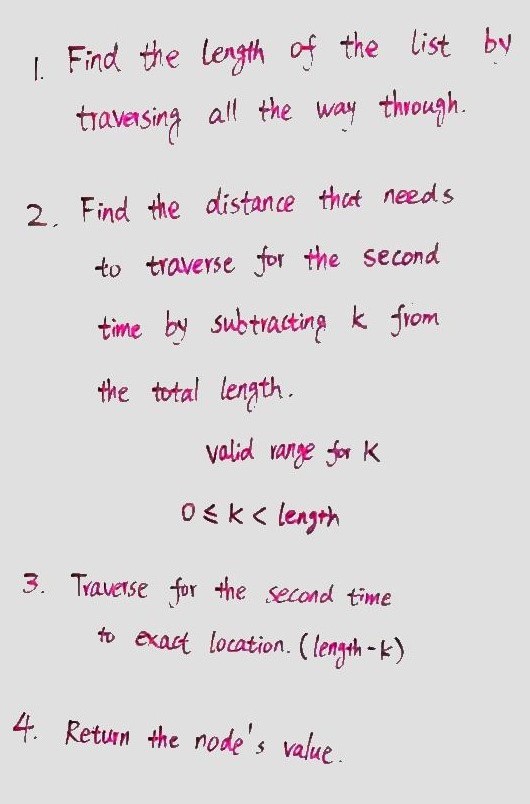 1. Find the length of the list by
traversing all the way through.
2. Find the distance that needs
to traverse for the second
time by subtracting k from
the total length.
valid range for k
0 ≤ k < length
3. Traverse for the second time
to exact location. (length - k)
4. Return the node's value.